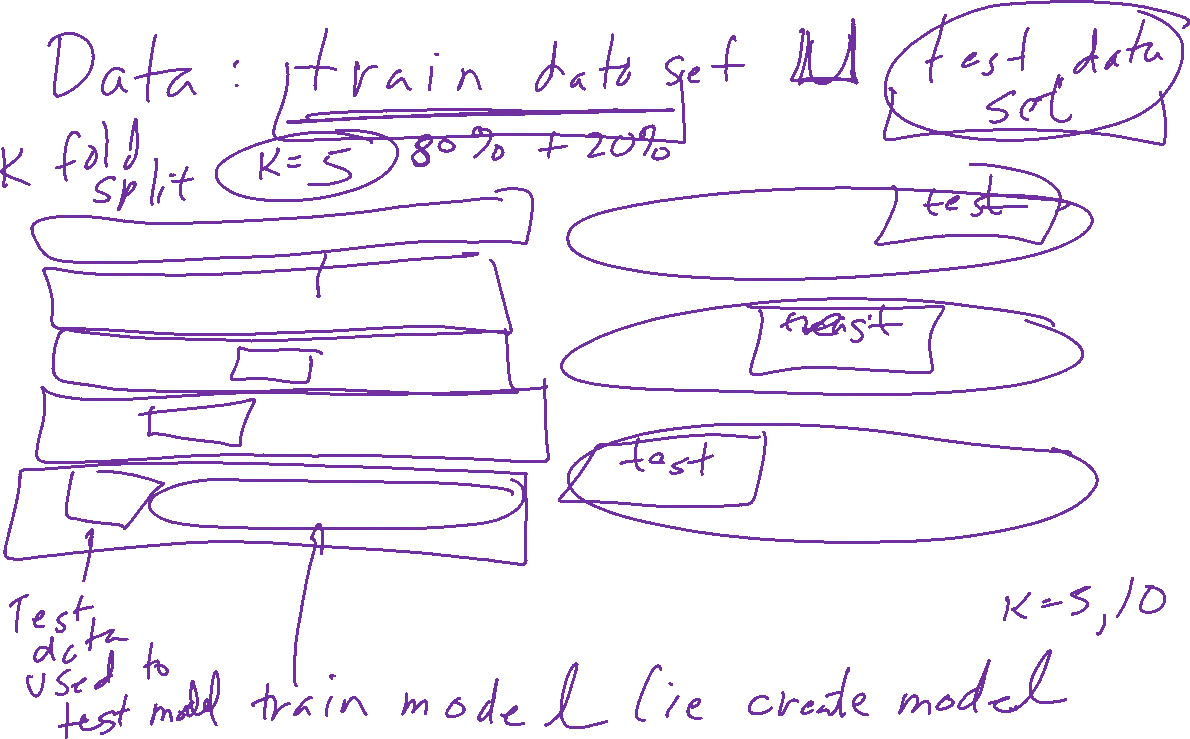 Data: train data set ⊔ test data set
K fold split K=5 80% + 20%
test
test
test
K=5,10
Test data used to test model
train model (ie create model